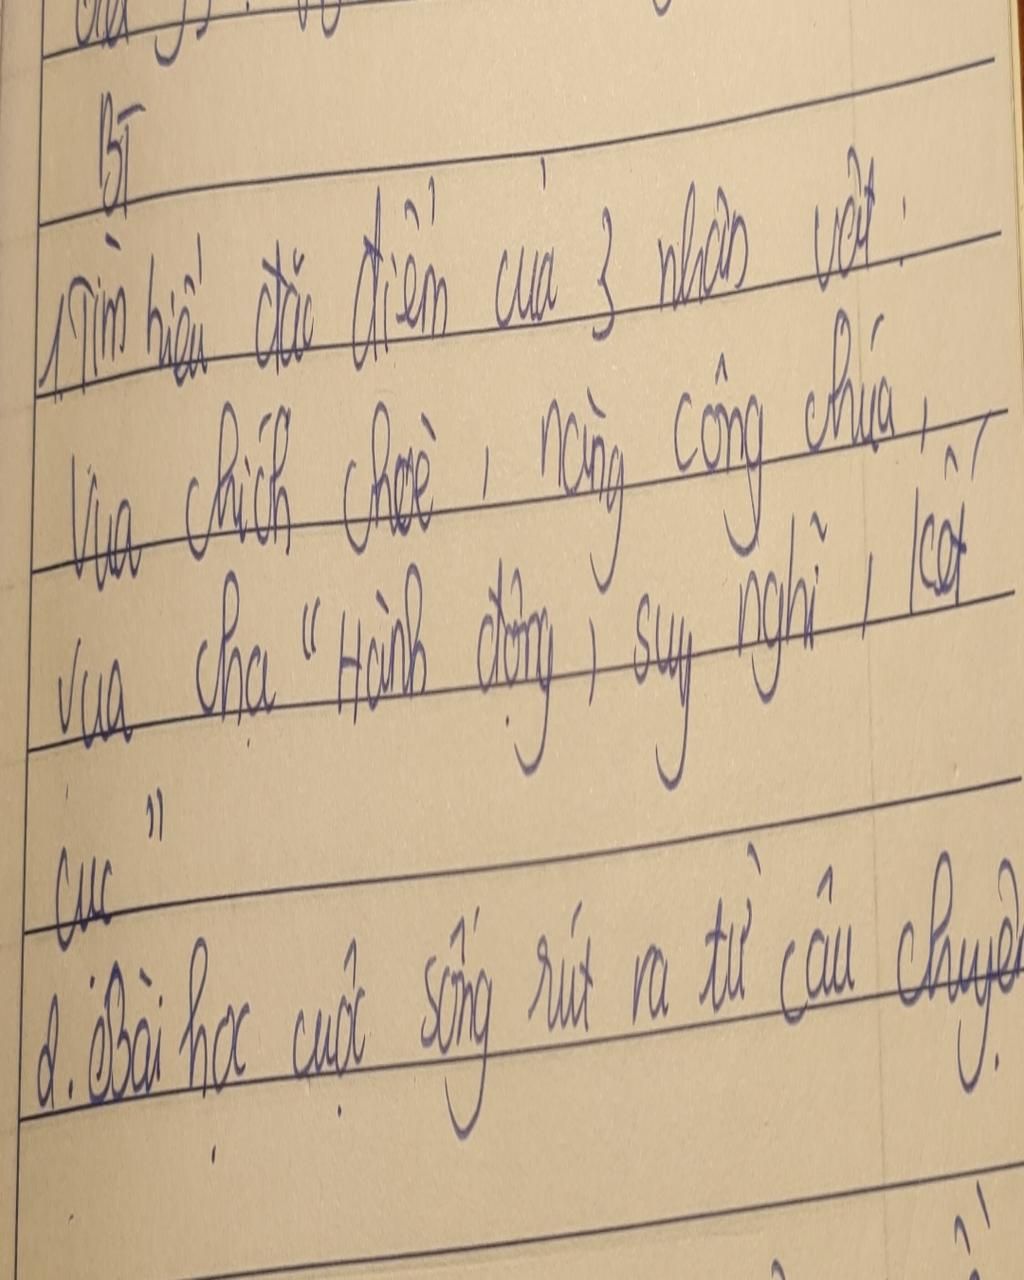 BT
1. Tìm hiểu đặc điểm của 3 nhân vật.
Vua chích choè, nàng công chúa,
vua cha "Hành động, suy nghĩ, kết
cục"
2. Bài học cuộc sống rút ra từ câu chuyện